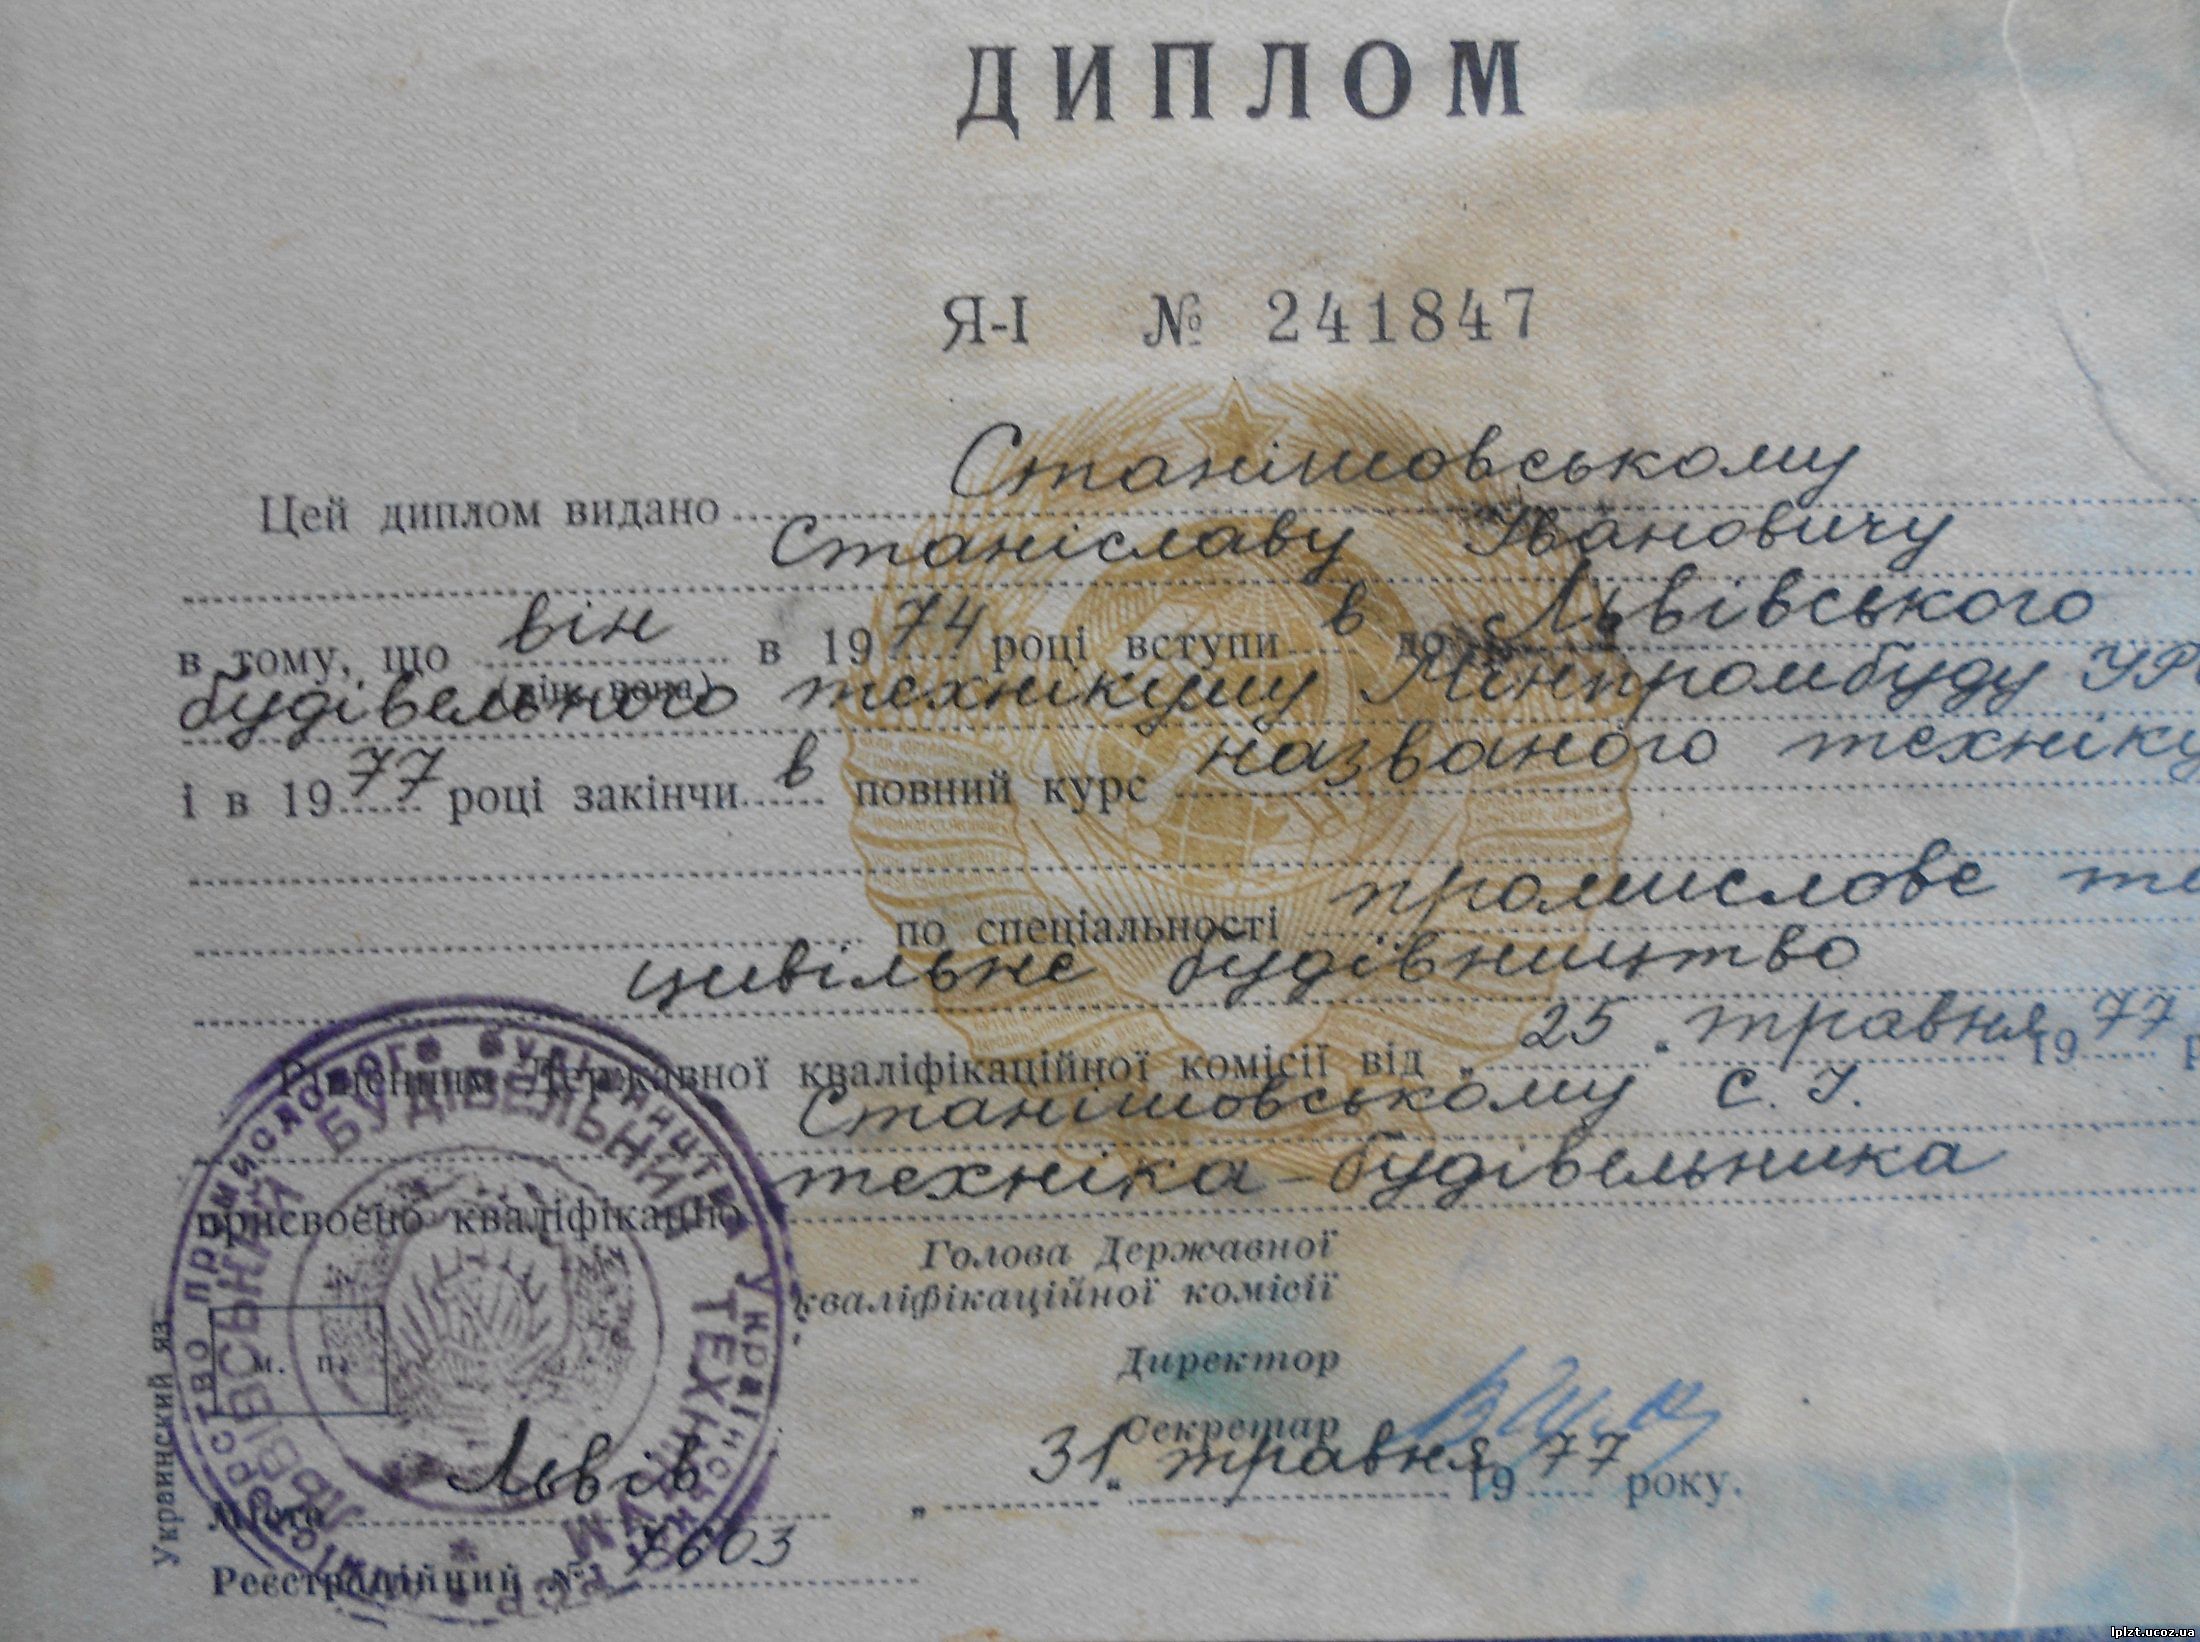 ДИПЛОМ
Я-І № 241847
Цей диплом видано Станішовському
Станіславу Івановичу
в тому, що він в 1974 році вступив до Львівського
(він, вона)
будівельного технікуму Мінпромбуду УР
і в 1977 році закінчив повний курс названого техніку
по спеціальності промислове та
цивільне будівництво
Рішенням Державної кваліфікаційної комісії від „25" травня 1977 р
Станішовському С. І.
присвоєно кваліфікацію техніка-будівельника
Голова Державної
кваліфікаційної комісії
Директор
Секретар
м. п.
Місто Львів „31" травня 1977 року.
Реєстраційний №
Украинский яз.
промислового будівництва Української РСР
ЛЬВІВСЬКИЙ БУДІВЕЛЬНИЙ ТЕХНІКУМ
lplzt.ucoz.ua